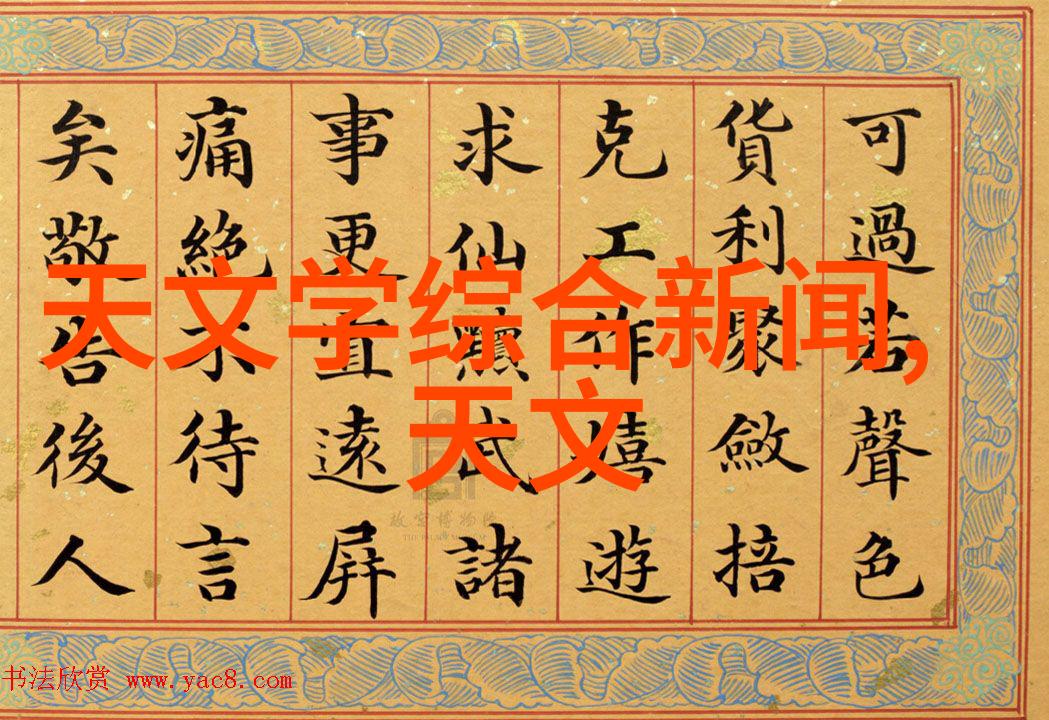 天文学综合新闻,
天文
可過若聲色
貨利聚斂掊
克工作嬉遊
求仙黷武諸
事更宜遠屏
痛絕不待言
矣敬告後人
故宫博物院
书法欣赏 www.yac8.com